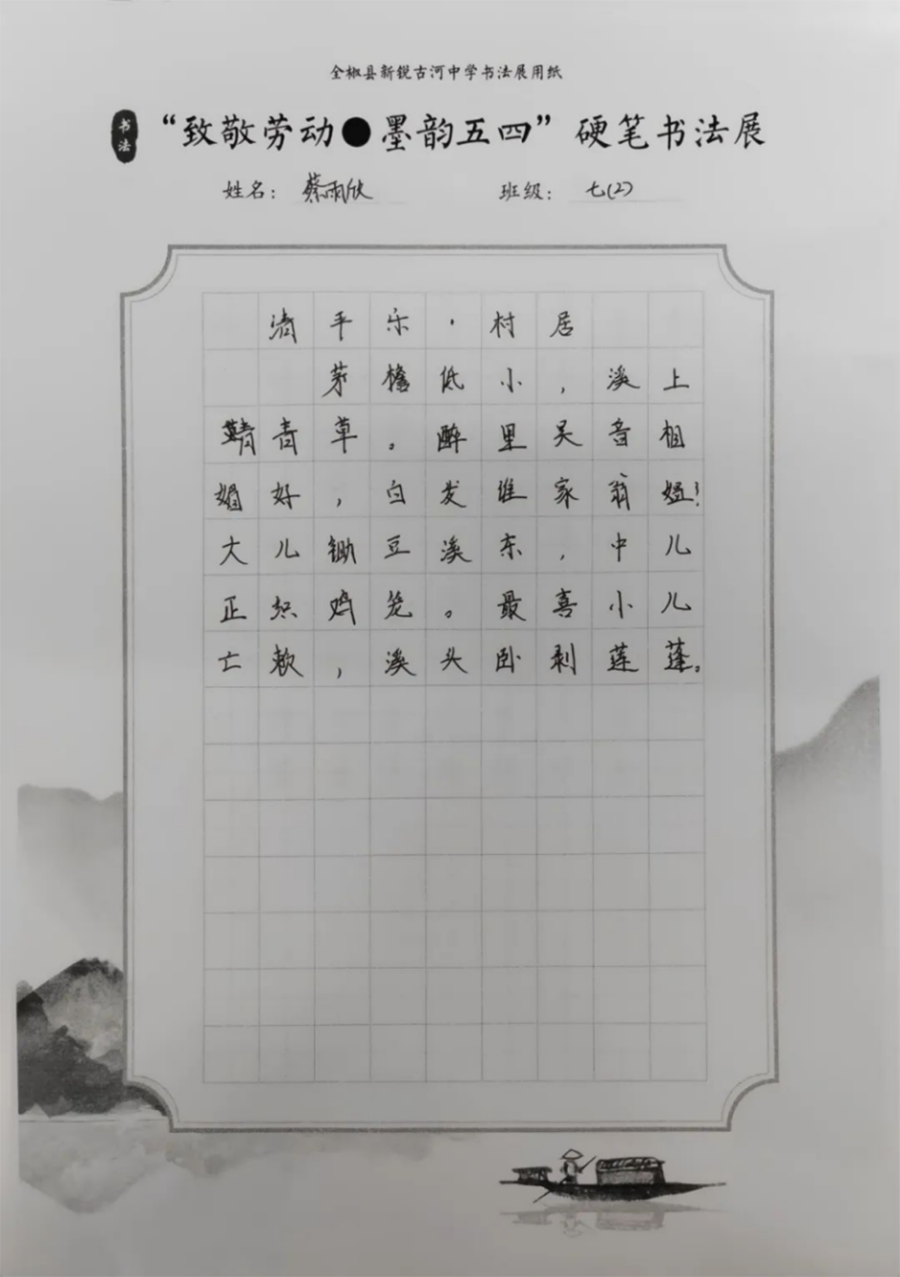 全椒县新锐古河中学书法展用纸
书法
“致敬劳动●墨韵五四”硬笔书法展
姓名：蔡雨欣 班级：七(2)
清平乐·村居
茅檐低小，溪上
青青草。醉里吴音相
媚好，白发谁家翁媪！
大儿锄豆溪东，中儿
正织鸡笼。最喜小儿
亡赖，溪头卧剥莲蓬。